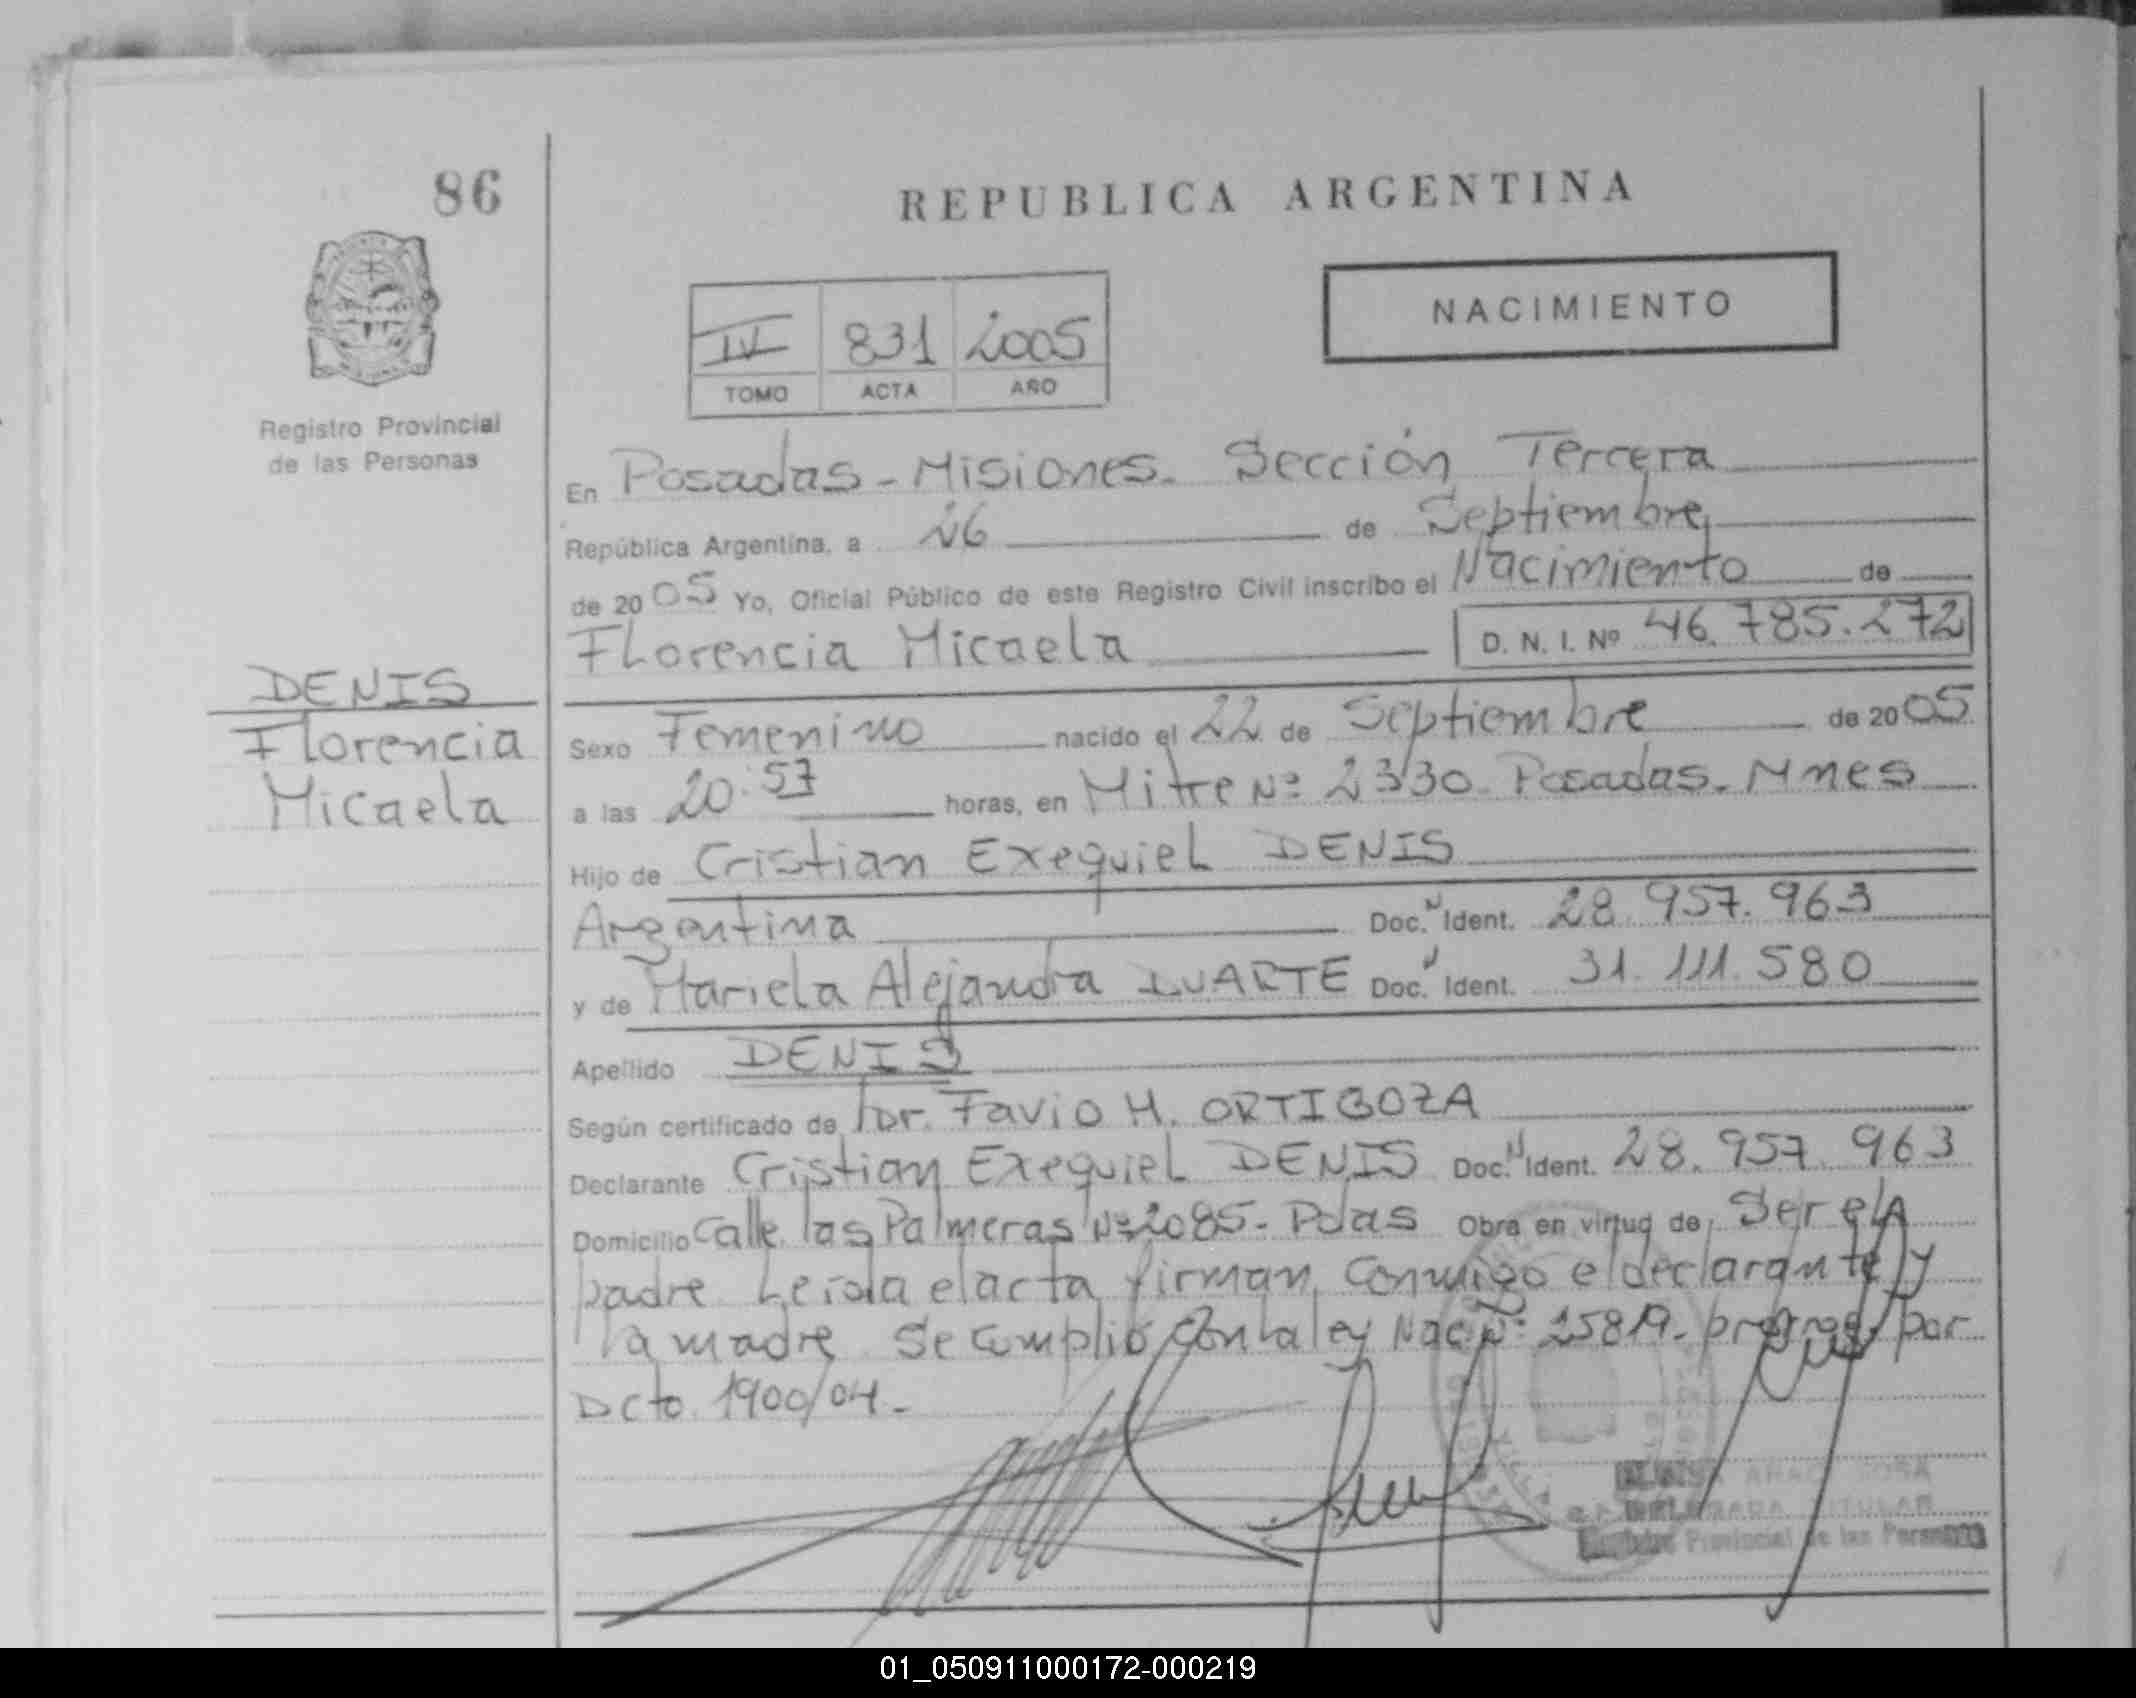 86
REPUBLICA ARGENTINA
NACIMIENTO
IV 831 2005
TOMO ACTA AÑO
Registro Provincial
de las Personas
En Posadas - Misiones. Sección Tercera
República Argentina, a 26 de Septiembre
de 2005 Yo, Oficial Público de este Registro Civil inscribo el Nacimiento de
Florencia Micaela D. N. I. Nº 46.785.272
DENIS
Florencia
Micaela
Sexo Femenino nacido el 22 de Septiembre de 2005
a las 20:57 horas, en Mitre Nº 2330. Posadas. Mnes
Hijo de Cristian Exequiel DENIS
Argentina Doc. N Ident. 28.957.963
y de Mariela Alejandra DUARTE Doc. N Ident. 31.111.580
Apellido DENIS
Según certificado de Dr. Favio H. ORTIGOZA
Declarante Cristian Exequiel DENIS Doc. N Ident. 28.957.963
Domicilio Calle las Palmeras Nº 2085. Pdas Obra en virtud de Ser el
padre Leida el acta firman conmigo el declarante y
la madre. Se cumplió con la ley Nac. Nº 25819. por
Dcto. 1900/04.-
SOSA
DELEGADA TITULAR
Provincial de las Personas
01_050911000172-000219